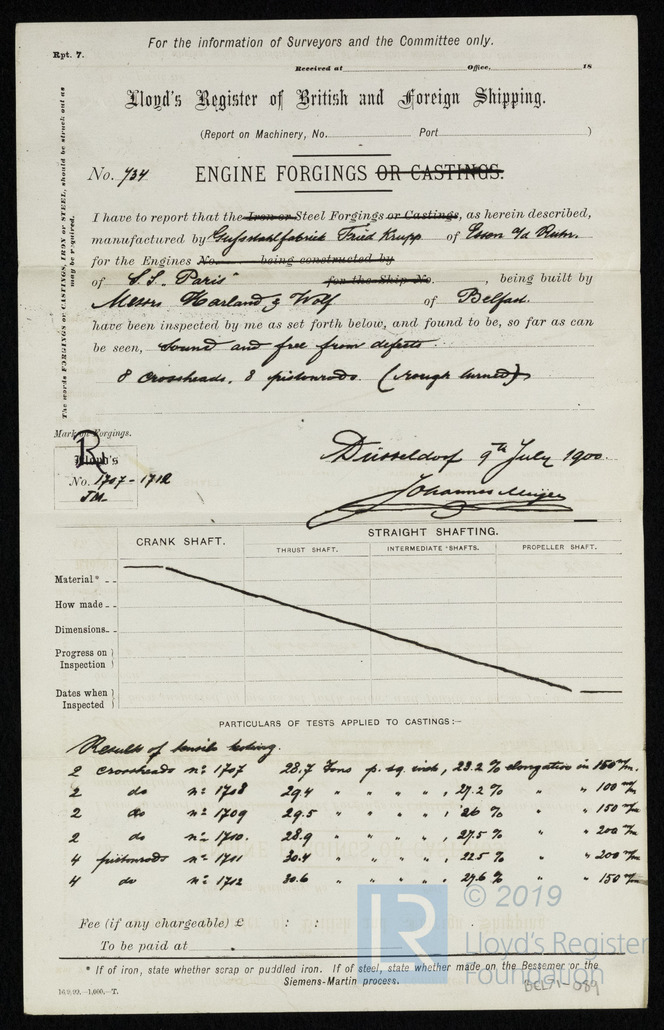 For the information of Surveyors and the Committee only.
Rpt. 7.
Received at Office, 18
Lloyd's Register of British and Foreign Shipping.
(Report on Machinery, No. Port )
No. 734 ENGINE FORGINGS OR CASTINGS.
The words FORGINGS or CASTINGS, IRON or STEEL, should be struck out as may be required.
I have to report that the Iron or Steel Forgings or Castings, as herein described,
manufactured by Gußstahlfabrik Fried Krupp of Essen a/d Ruhr.
for the Engines No. being constructed by
of S.S. "Paris" for the Ship No. , being built by
Messrs Harland & Wolf of Belfast.
have been inspected by me as set forth below, and found to be, so far as can
be seen, sound and free from defects.
8 crossheads, 8 pistonrods. (rough turned)
Mark on Forgings.
R
Lloyd's
No. 1707 - 1712
JM.
Düsseldorf 9th July 1900.
Johannes Meijer
CRANK SHAFT. STRAIGHT SHAFTING.
THRUST SHAFT. INTERMEDIATE SHAFTS. PROPELLER SHAFT.
Material*
How made
Dimensions
Progress on Inspection
Dates when Inspected
PARTICULARS OF TESTS APPLIED TO CASTINGS:—
Results of tensile testing.
2 crossheads no 1707 28.7 Tons p. sq. inch, 23.2 % elongation in 150 m/m.
2 do no 1708 29.4 " " " " , 27.2 % " " 100 m/m
2 do no 1709 29.5 " " " " , 26 % " " 150 m/m
2 do no 1710. 28.9 " " " " , 27.5 % " " 200 m/m
4 pistonrods no 1711 30.4 " " " " , 22.5 % " " 200 m/m
4 do no 1712 30.6 " " " " , 27.6 % " " 150 m/m
Fee (if any chargeable) £ : :
To be paid at
* If of iron, state whether scrap or puddled iron. If of steel, state whether made on the Bessemer or the
Siemens-Martin process.
16.9.99.—1,000.—T.
BEL71-089
LR
© 2019
Lloyd's Register
Foundation